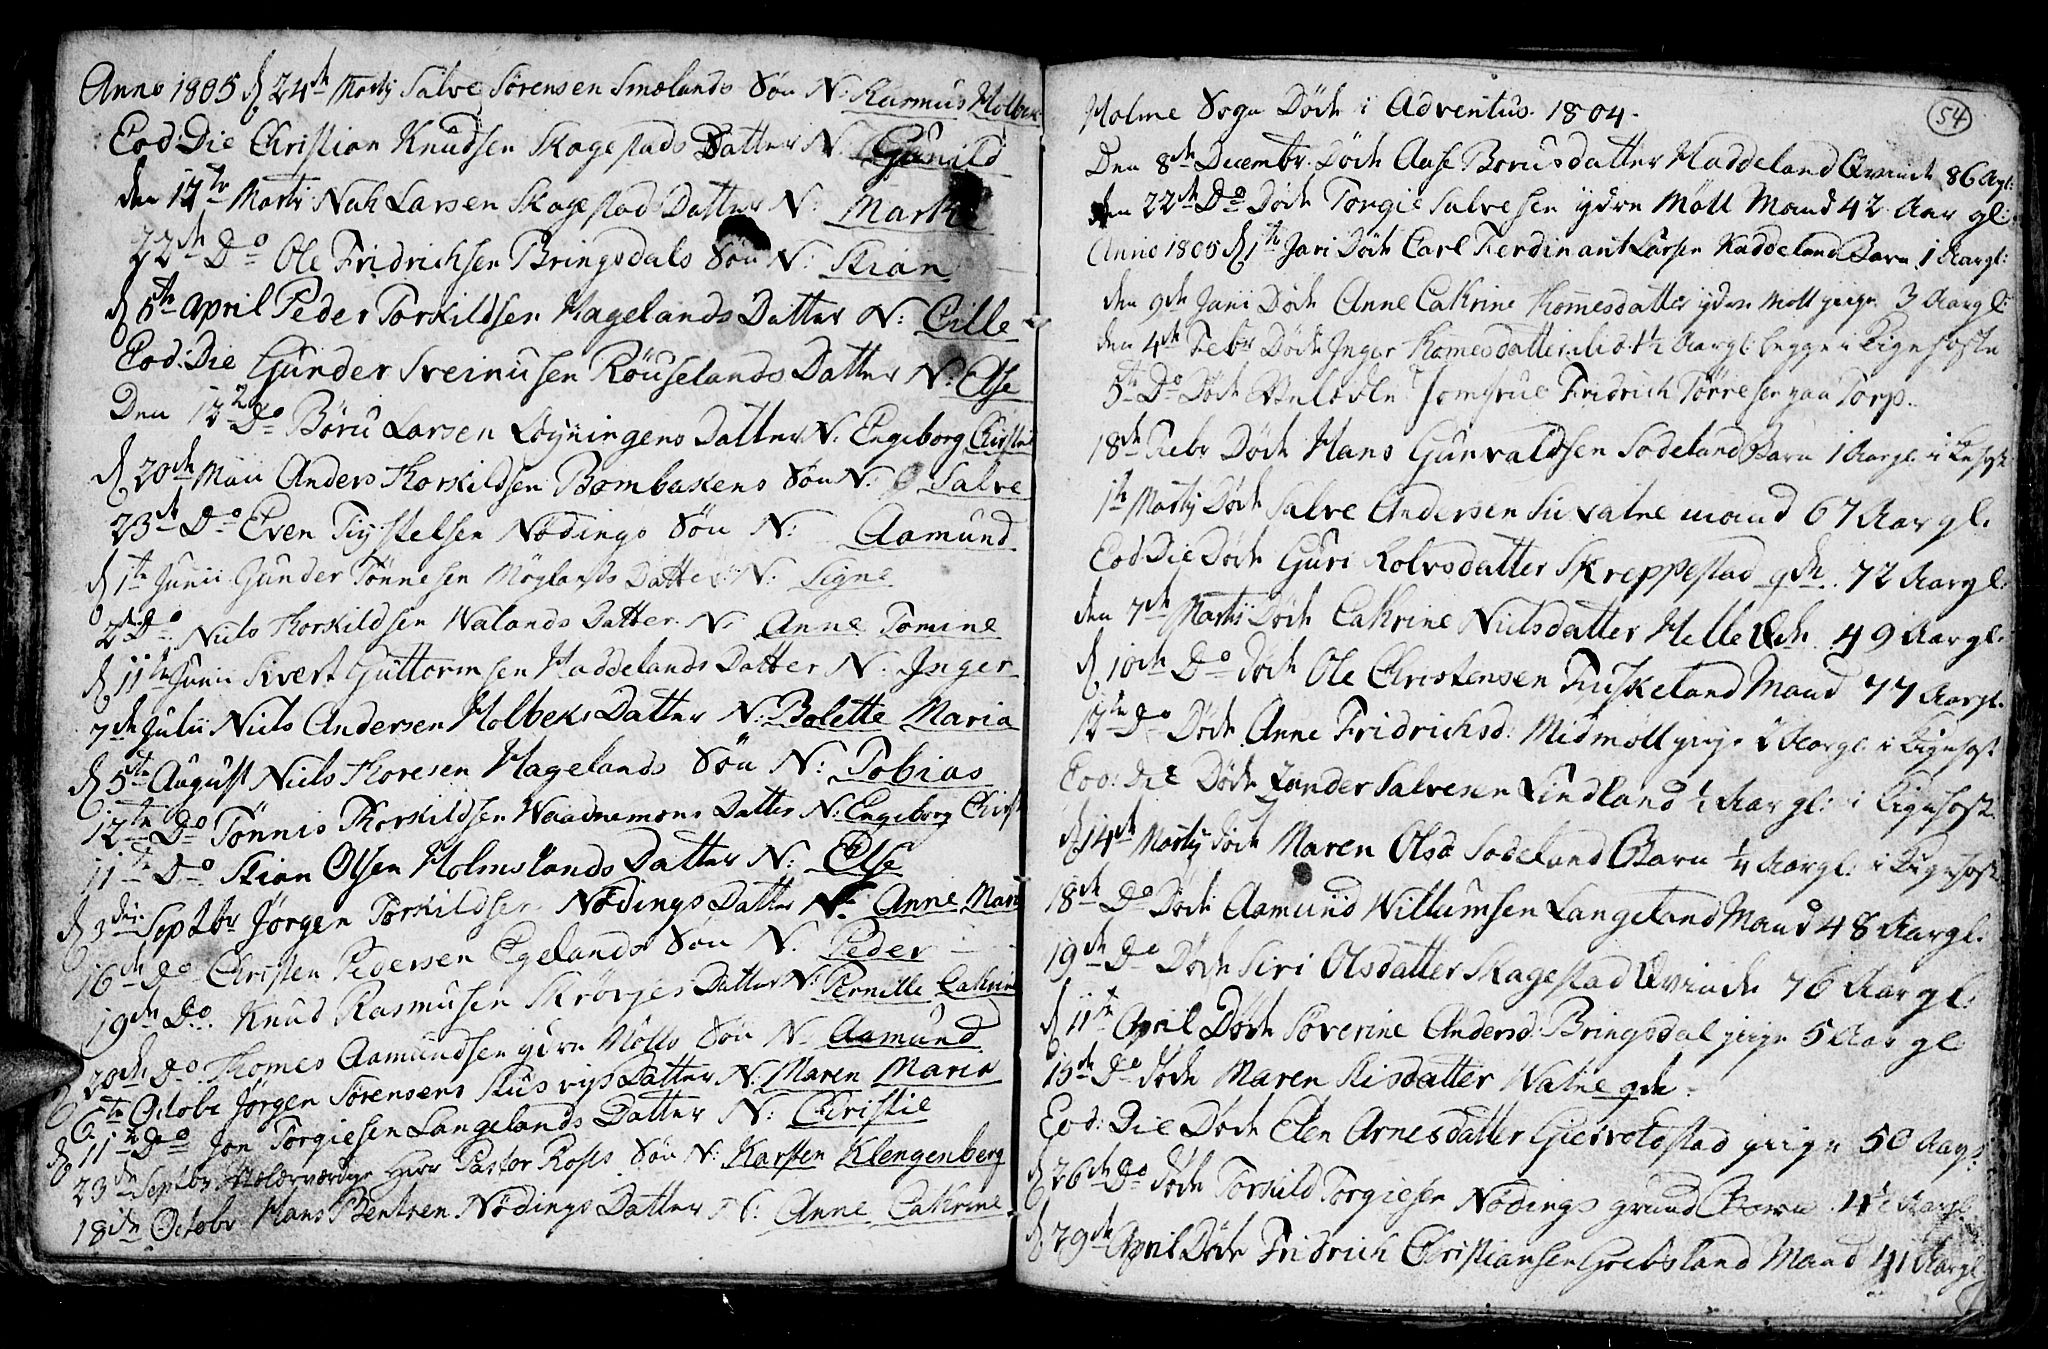 Anno 1805 d 24de Martij Salve Sörensen Smælands Sön N: Rasmus Holbek
Eod: Die Christian Knudsen Skagestads Datter N: Gunild
den 12te Marti Nah Larsen Skagestad Datter N: Marthe
22de Do Ole Fridrichsen Bringsdals Sön N: Stian
d 5te April Peder Torkildsen Hagelands Datter N: Cille
Eod: Die Gunder Sveinusen Röuselands Datter N: Else
Den 12 Do Böru Larsen Löyningens Datter N: Engeborg Christ
d 20de Maii Anders Thorkildsen Bombakens Sön N: Salve
23de Do Even Tiystelsen Nödings Sön N: Aamund
d 1te Junii Gunder Tönnesen Möglands Datter N: Signe
2de Do Niels Thorkildsen Walands Datter N: Anne Tomine
d 11te Junii Sivert Guttormsen Haddelands Datter N: Inger
7de Julii Niels Andersen Holbeks Datter N: Bolette Maria
d 5te August Niels Thoresen Hagelands Sön N: Tobias
12te Do Tönnis Thorkildsen Waadnemons Datter N: Engeborg Christ
11te Do Stian Olsen Holmslands Datter N: Else
d 3die Septbr Jörgen Torkildsen Nödings Datter N: Anne Mari
16de Do Christen Pedersen Egelands Sön N: Peder
19de Do Knud Rasmusen Skröyes Datter N: Pernille Cathrin
20de Do Thomes Aamundsen ydre Mölls Sön N: Aamund
6te Octobr Jörgen Sörensens Datter N: Maren Maria
d 11te Do Jon Torgiesen Langelands Datter N: Christie
23de Septbr Velærværdige Herr Pastor Roses Sön N: Karsten Klengenberg
18de Octobr Hans Bentsen Nödings Datter N: Anne Cathrine
54
Holme Sogn Döde i Adventus 1804.
Den 8de Decembr. Döde Aase Börusdatter Haddeland Qvinde 86 Aargl:
den 22de Do Döde Torgie Salvesen ydre Möll Mand 42 Aar gl:
Anno 1805 d 1te Jari Döde Carl Ferdinant Larsen Haddeland Barn 1 Aargl:
den 9de Janii Döde Anne Cathrine Thomesdatter ydre Möll pige 3 Aargl:
den 4de Febr Döde Inger Thomesdatter ibid. 1½ Aargl: begge i Kighoste
5te Do Döde Jomfrue Fridrich Törresen paa Torp.
18de Febr Döde Hans Gunvaldsen Södeland Barn 1 Aargl: i
1te Martij Döde Salve Andersen Suvatne mand 67 Aargl.
Eod: Die Döde Guri Rolvsdatter Skreppestad qde. 72 Aargl:
den 7de Martij Döde Cathrine Nielsdatter Helle Qde. 49 Aargl:
d 10de Do Döde Ole Christensen Tuskeland Mand 77 Aargl.
12te Do Döde Anne Fridrichsd: Midmöll pige 2 Aargl: i Kighost
Eod: Die Döde Gunder Salvesen Lindland ½ Aar gl: i Kighost.
d 14de Martij Döde Maren Olsd Södeland Barn ¼ Aargl: i Kighost
18de Do Döde Aamund Willumsen Langeland Mand 48 Aargl.
19de Do Döde Siri Olsdatter Skagestad Qvinde 76 Aar gl:
d 11te April Döde Söverine Andersd: Bringsdal pige 5 Aar gl:
15de Do döde Maren Stisdatter Watne qde.
Eod: Die Döde Elen Arnesdatter Gietvoldstad pige 50 Aargl:
d 26de Do döde Torkild Torgiesen Nödings grund Barn 1½ Aargl:
d 29de April Döde Fridrich Christiansen Goebsland Mand 41 Aargl: